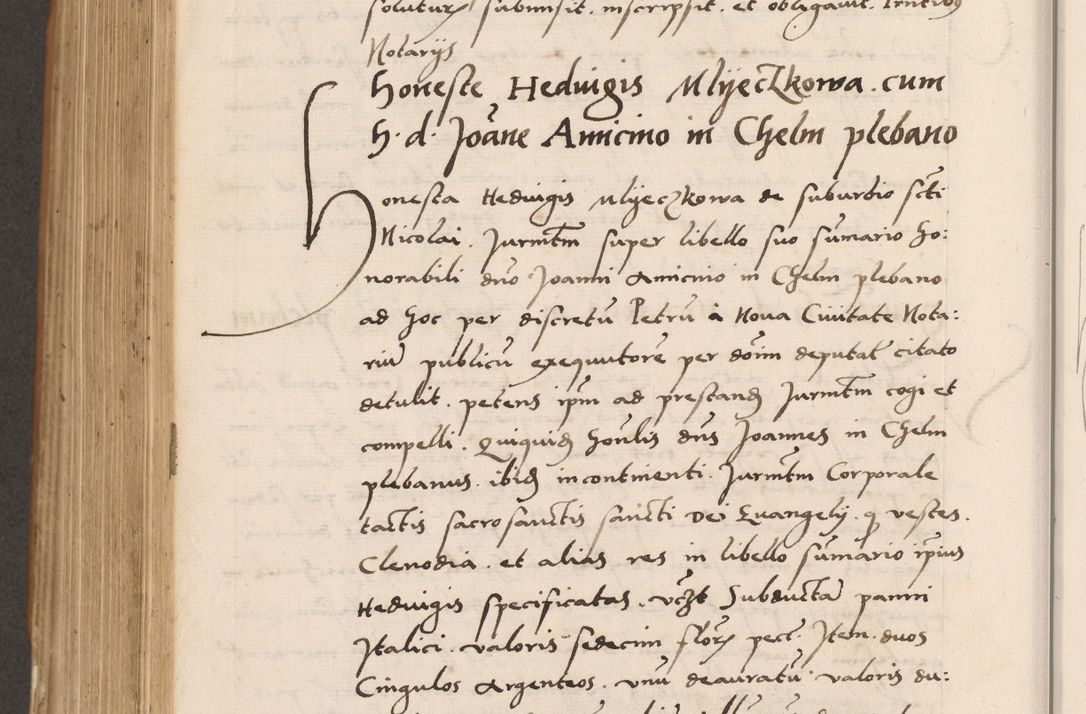 soluturum submisit. inscripsit. et obligavit. Prntibus
Notarijs
honeste Hedvigis Mlyeczkowa. cum
h. d. Joāne Amicino in Chelm plebano
Honesta Hedvigis Mlyeczkowa de suburbio scti
Nicolai. Jurmtm super libello suo sūmario ho:
norabili dno Joanni Amicino in Chelm plebano
ad hoc per discretū Petrū à Nova Civitate Nota:
riū publicū exequutorē per dōim deputat citato
detulit. petens ipm ad prestand Jurmtm cogi et
compelli. Quiquid honlis dns Joannes in Chelm
plebanus. ibid incontinenti. Jurmtm Corporale
tactis sacrosanctis sancti Dei Evangelij. q vestes.
Clenodia. et alias res in libello sūmario ipius
Hedvigis specificatas. vczt Subductā panni
Italici. valoris sedecim flor pecc. Item. duos
Cingulos Argenteos. unū deauratū. valoris du: